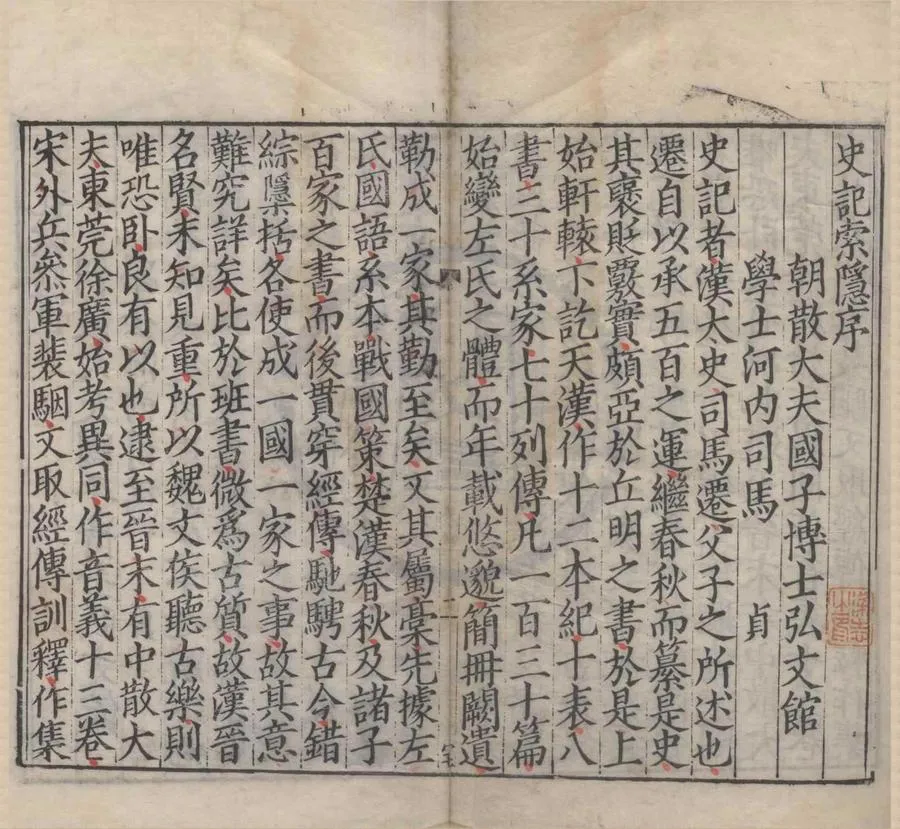 史記索隱序
朝散大夫國子博士弘文館
學士河内司馬　貞
史記者漢太史司馬遷父子之所述也
遷自以承五百之運繼春秋而纂是史
其襃貶覈實頗亞於丘明之書於是上
始軒轅下訖天漢作十二本紀十表八
書三十系家七十列傳凡一百三十篇
始變左氏之體而年載悠邈簡冊闕遺
勒成一家其勤至矣又其屬稾先據左
氏國語系本戰國策楚漢春秋及諸子
百家之書而後貫穿經傳馳騁古今錯
綜隱括各使成一國一家之事故其意
難究詳矣比於班書微爲古質故漢晉
名賢未知見重所以魏文侯聽古樂則
唯恐卧良有以也逮至晉末有中散大
夫東莞徐廣始考異同作音義十三卷
宋外兵叅軍裴駰又取經傳訓釋作集